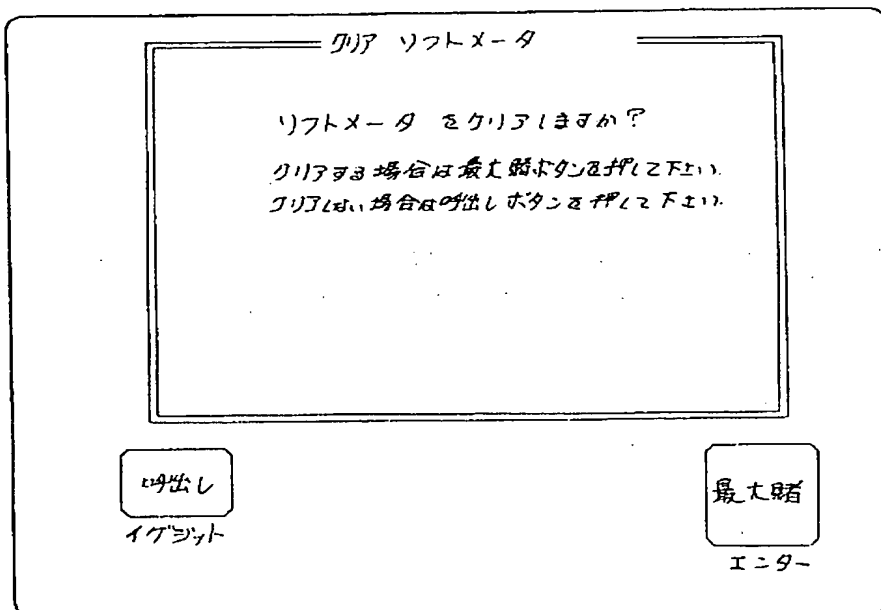 クリア ソフトメータ
ソフトメータ をクリアしますか？
クリアする場合は最大賭ボタンを押して下さい.
クリアしない場合は呼出しボタンを押して下さい.
呼出し
最大賭
イグジット
エンター